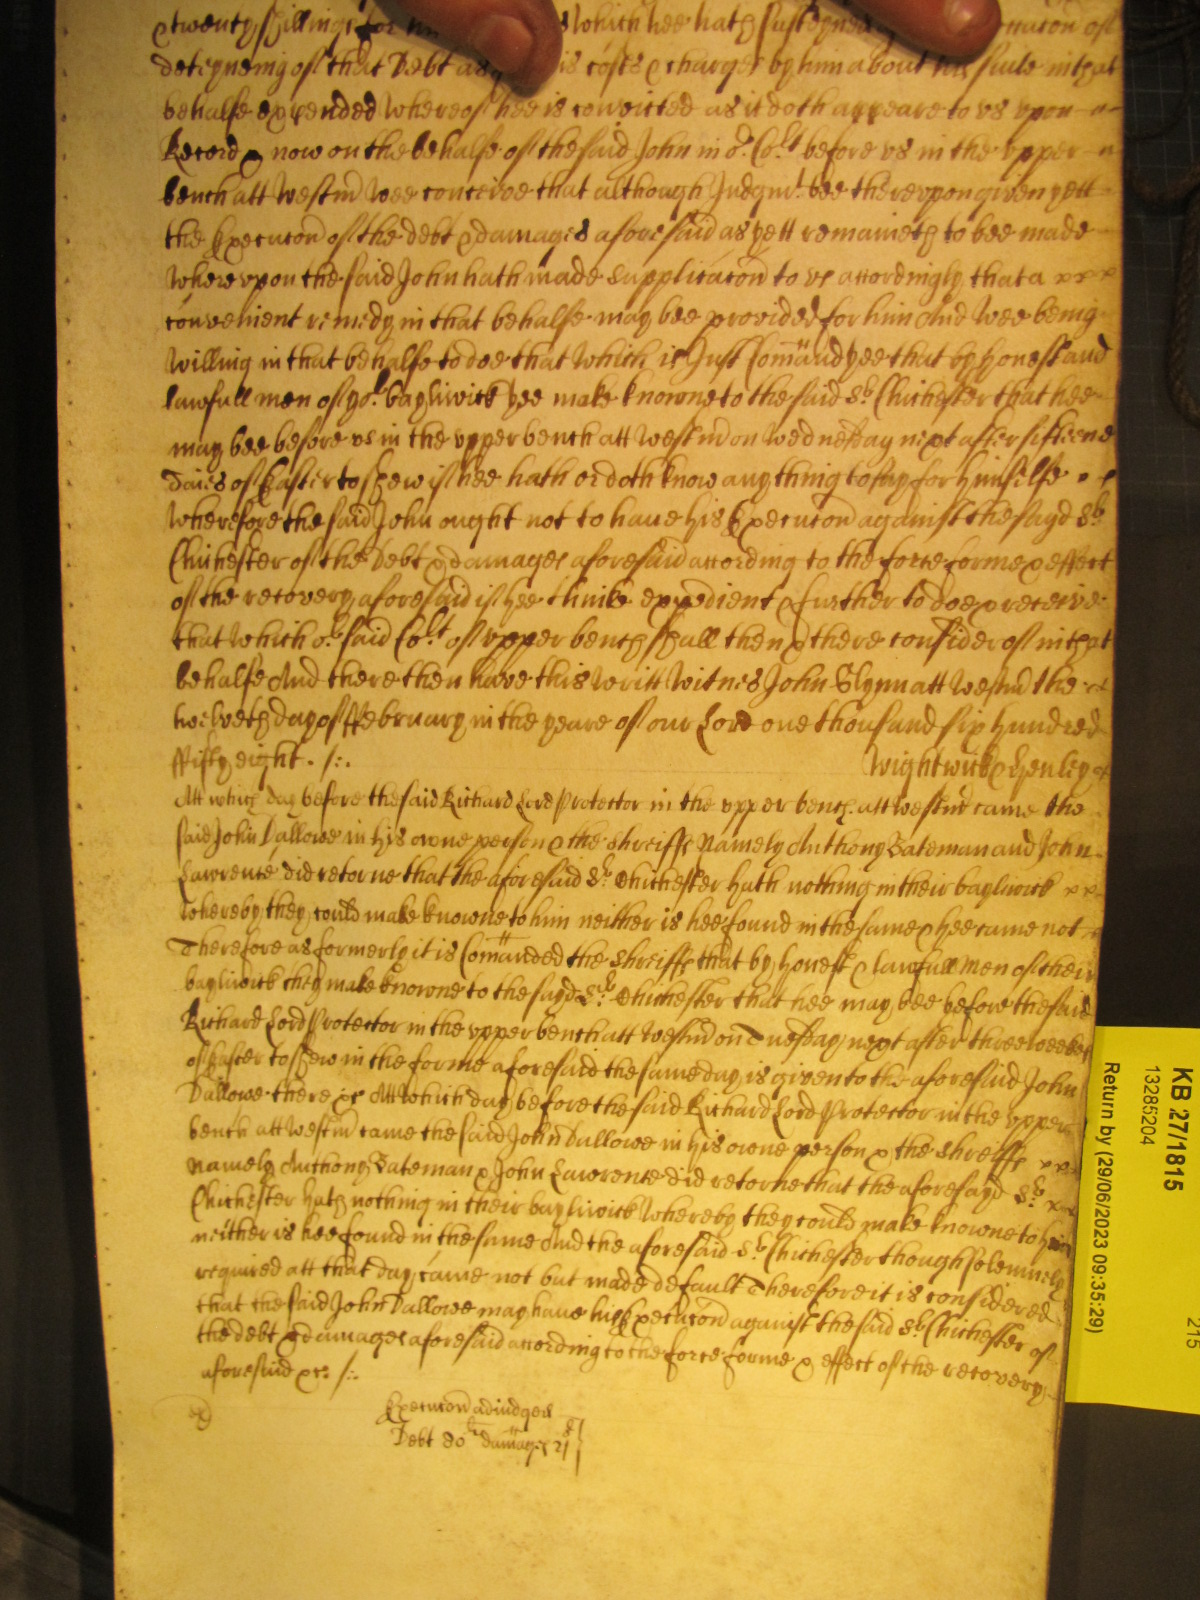 & twenty shillings for which hee hath susteyned of
deteyneing of that Debt as is costs & charges by him about his suite in that
behalfe expended whereof hee is convicted as it doth appeare to vs vpon
Record & now on the behalfe of the said John in or Cort before vs in the vpper
bench att Westmr Wee conceive that although Judgmt bee therevpon given yett
the Execucon of the debt & damages aforesaid as yett remaineth to bee made
Wherevpon the said John hath made Supplicacon to vs accordingly that a
convenient remedy in that behalfe may bee provided for him And Wee being
willing in that behalfe to doe that Which is Just Comaund yee that by honest and
lawfull men of yor bayliwick yee make knowne to the said Sr Chichester that hee
may bee before vs in the vpper bench att Westmr on Wednesday next after fifteene
daies of Easter to shew if hee hath or doth know any thing to say for himselfe
Wherefore the said John ought not to haue his Execucon against the sayd Sr
Chichester of the Debt & damages aforesaid according to the force forme & effect
of the recovery aforesaid if hee thinke expedient & further to doe & receive
that Which or said Cort of vpper bench shall then & there consider of in that
behalfe And there then have this writt Witnes John Glynn att Westmr the
twelveth day of ffebruary in the yeare of our Lord one thousand six hundred
ffifty eight . /:.
Wightwick & Henley
Att which day before the said Richard Lord Protector in the vpper bench att Westmr came the
said John Dallowe in his owne person & the Shreiffs Namely Anthony Bateman and John
Lawrence did retorne that the aforesaid Sr Chichester hath nothing in their bayliwick
Whereby they could make knowne to him neither is hee found in the same & hee came not
Therefore as formerly it is Comanded the Shreiffs that by honest & lawfull men of their
bayliwick they make knowne to the sayd Sr Chichester that hee may bee before the said
Richard Lord Protector in the vpper bench att Westmr on Tuesday next after three weekes
of Easter to shew in the forme aforesaid the same day is given to the aforesaid John
Dallowe there &c Att Which day before the said Richard Lord Protector in the vpper
bench att Westmr came the said John Dallowe in his owne person & the Shreiffs
Namely Anthony Bateman & John Lawrence did retorne that the aforesayd Sr
Chichester hath nothing in their bayliwick Whereby they could make knowne to him
neither is hee found in the same And the aforesaid Sr Chichester though solemnely
required att that day came not but made default Therefore it is considered
that the said John Dallowe may haue his Execucon against the said Sr Chichester of
the debt & damages aforesaid according to the force forme & effect of the recovery
aforesaid &c. /:.
Execucon adiudged
Debt 80 li damages 21 s
KB 27/1815
13285204
Return by (29/06/2023 09:35:29)
215